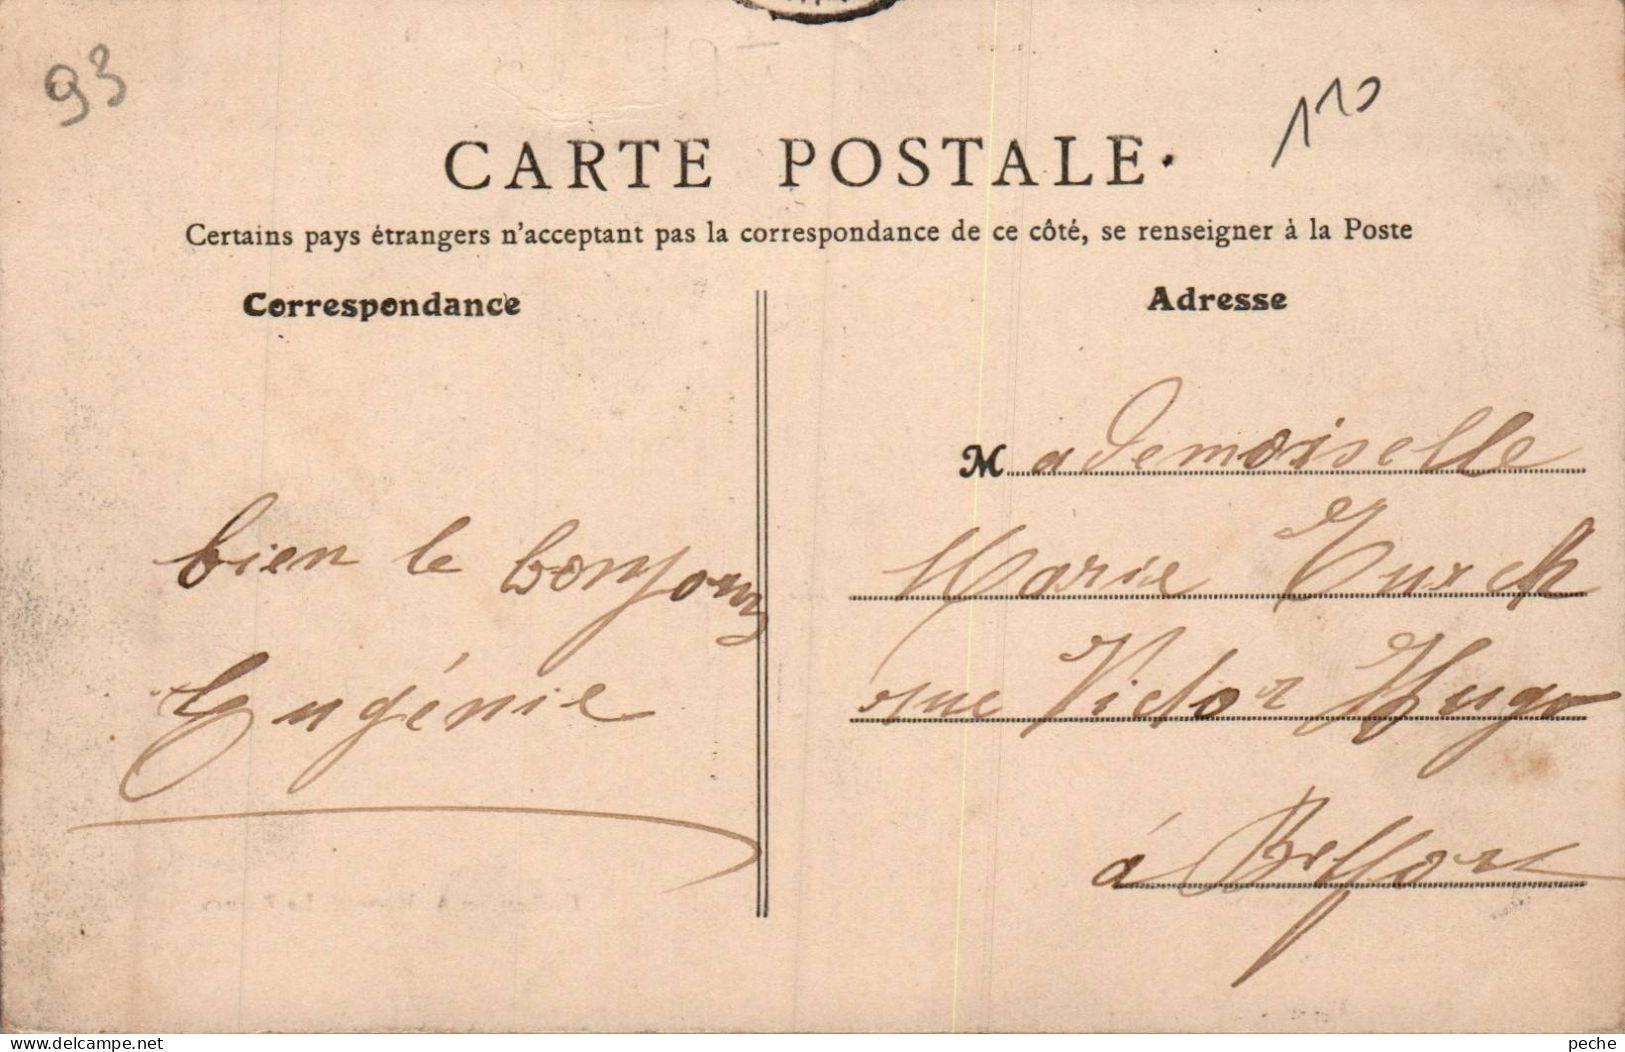 93
110
CARTE POSTALE.
Certains pays étrangers n'acceptant pas la correspondance de ce côté, se renseigner à la Poste
Correspondance
Adresse
Mademoiselle
Marie Turck
rue Victor Hugo
à Belfort
bien le bonjour
Eugénie
peche